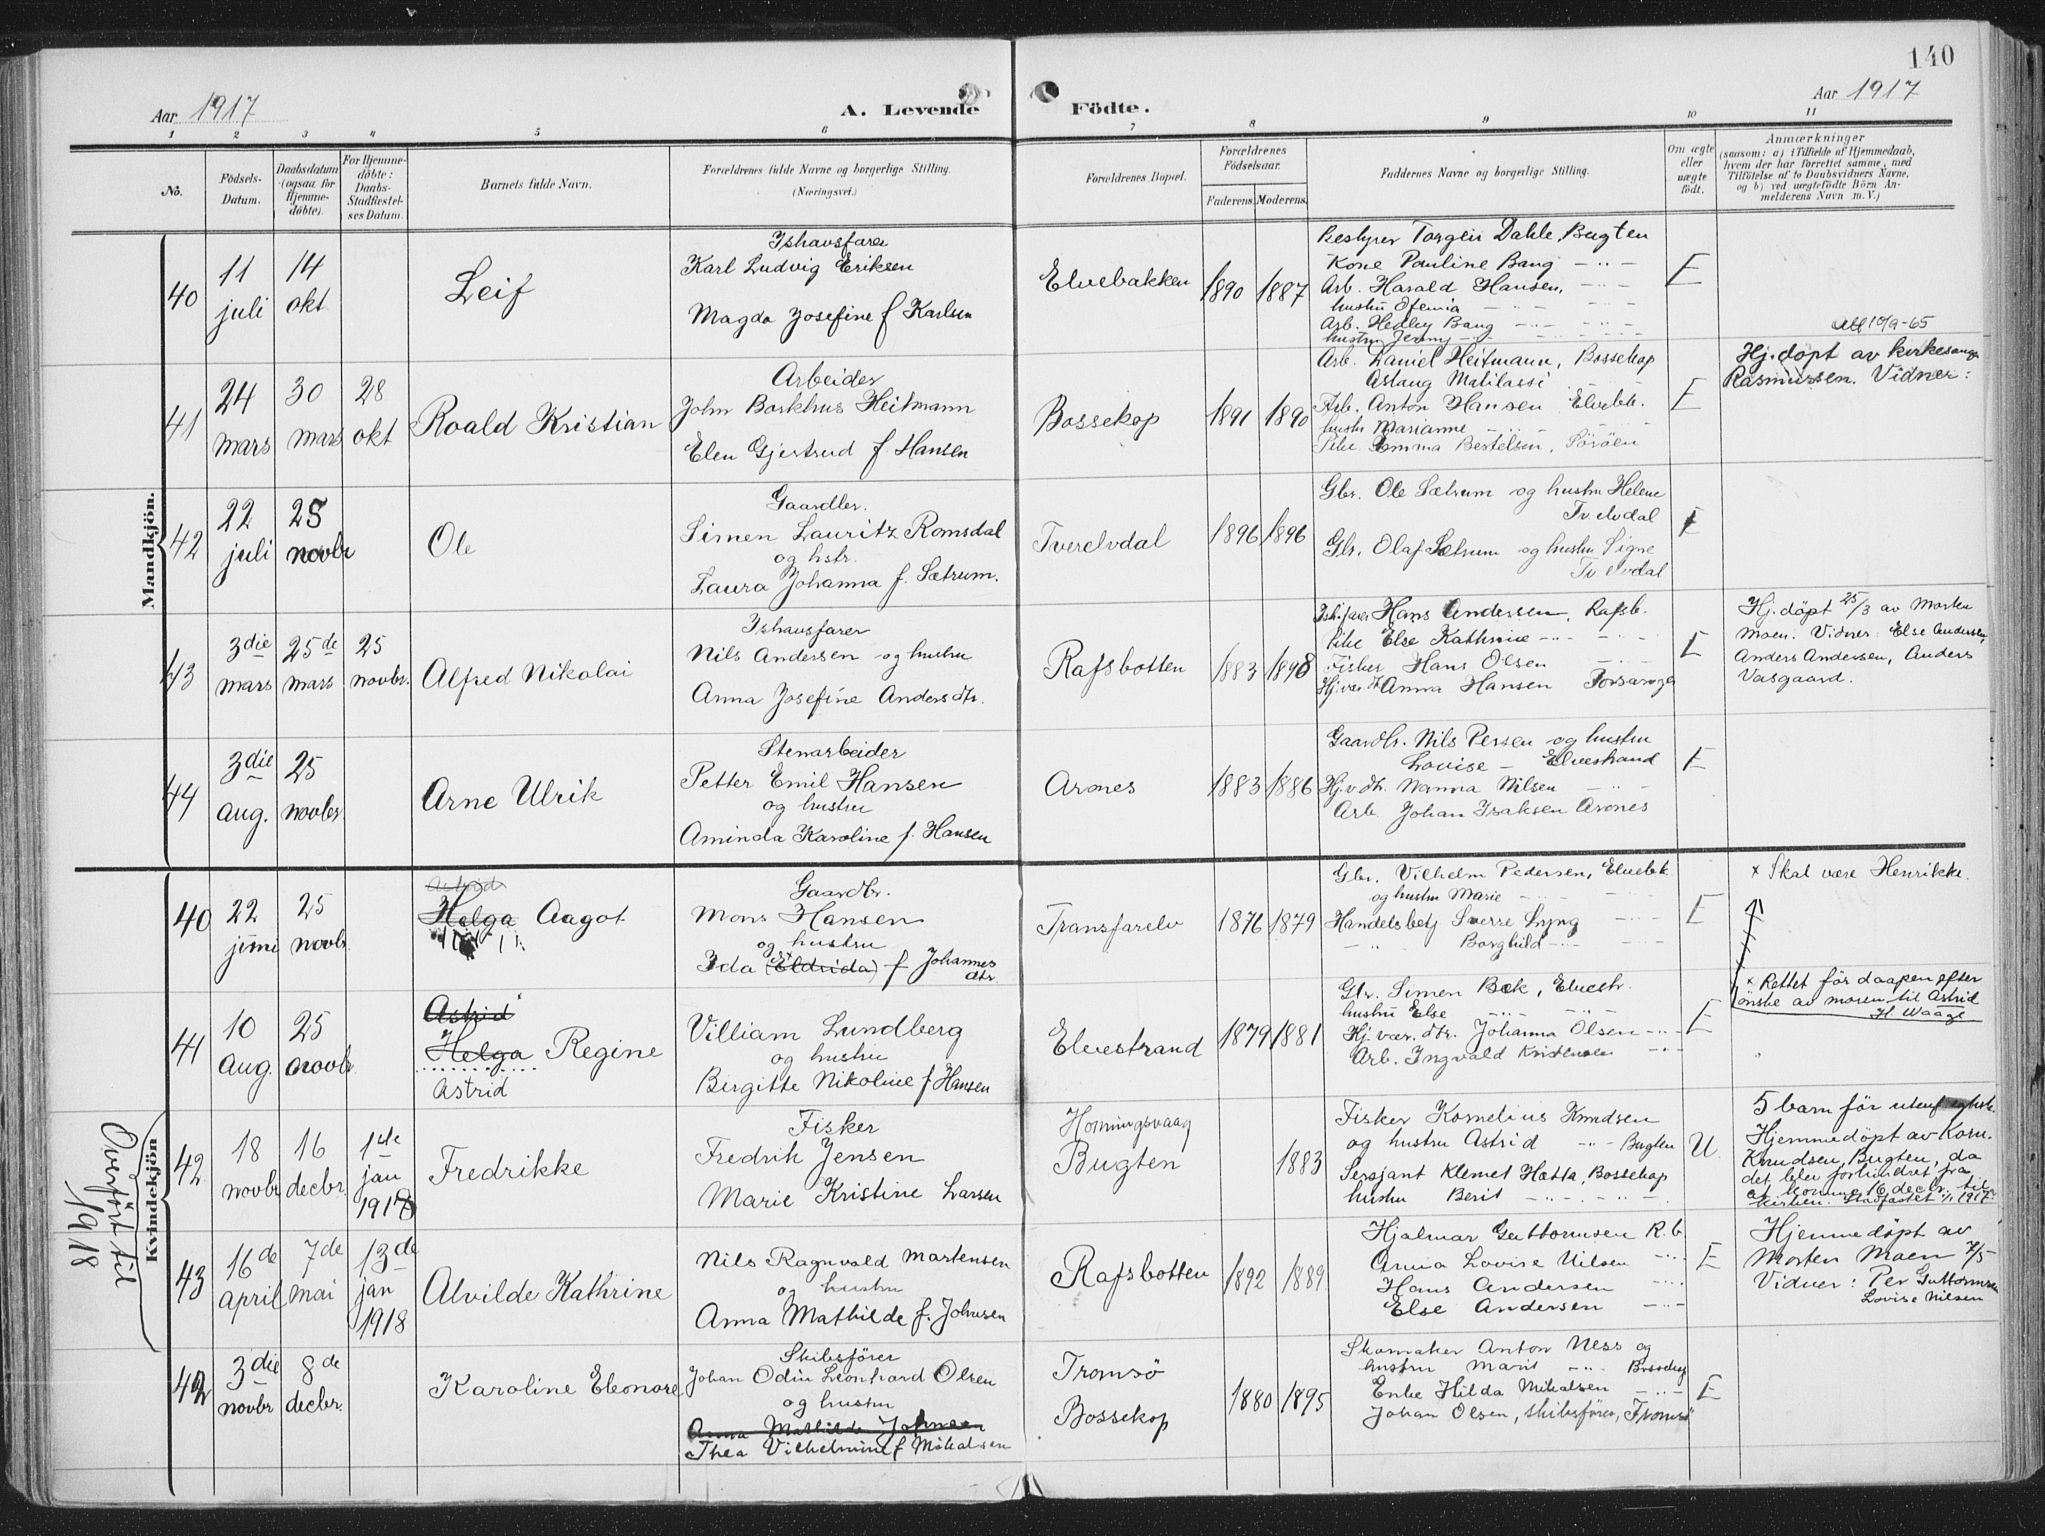 140
Aar 1917
A. Levende Födte.
Aar 1917
1 2 3 4 5 6 7 8 9 10 11
No.
Födsels-
Datum.
Daabsdatum
(ogsaa for
Hjemme-
döbte).
For Hjemme-
döbte:
Daabs-
Stadfæstel-
ses Datum.
Barnets fulde Navn.
Forældrenes fulde Navne og borgerlige Stilling.
(Næringsvei.)
Forældrenes Bopæl.
Forældrenes
Födselsaar.
Faderens. Moderens.
Faddernes Navne og borgerlige Stilling.
Om ægte
eller
uægte
født.
Anmærkninger
(saasom: a) i Tilfælde af Hjemmedaab,
hvem der har forrettet samme, med
Tilföielse af to Daabsvidners Navne,
og b) ved uægtefödte Börn An-
melderens Navn m. V.)
Mandkjön.
40
11
juli
14
okt.
Leif
Ishavsfarer
Karl Ludvig Eriksen
Magda Josefine f Karlsen
Elvebakken
1890
1887
Bestyrer Torgeir Dahle, Bugten
Kone Pauline Bang
Arb. Harald Hansen,
hustru
Arb. Hedley Bang
hustru Jenny
E
10/9-65
41
24
mars
30
mars
28
okt
Roald Kristian
Arbeider
John Borkhus Heitmann
Elen Gjertrud f Hansen
Bossekop
1891
1890
Arb. Daniel Heitmann, Bossekop
Aslaug
Arb. Anton Hansen Elvebk.
hustr Marianne
Pike Emma Bertelsen, Söröen
E
Hj. döpt av kirkesanger
Rasmussen. Vidner:
42
22
juli
25
novbr
Ole
Gaardbr.
Simen Lauritz Romsdal
og hstr.
Laura Johanna f. Sætrum.
Tverelvdal
1896
1896
Gbr. Ole Sætrum og hustru Helene
Tv. elvdal
Gbr. Olaf Sætrum og hustru Signe
Tv elvdal
E
43
3die
mars
25de
mars
25
novbr.
Alfred Nikolai
Ishavsfarer
Nils Andersen og hustru
Anna Josefine Andersdtr.
Rafsbotten
1883
1898
Ish.farer Hans Andersen, Rafsb.
Pike Else Kathrine
Fisker Hans Olsen
Hj.vær.dtr Anna Hansen
E
Hj. döpt 25/3 av Morten
Moen. Vidner: Else Andersen,
Anders Andersen, Anders
Vasgaard.
44
3die
aug.
25
novbr.
Arne Ulrik
Stenarbeider
Petter Emil Hansen
og hustru
Aminda Karoline f. Hansen
Arones
1883
1886
Gaardbr. Nils Persen og hustru
Lovise - Elvestrand
Hj.v.dtr. Nanna Nilsen
Arb. Johan Isaksen Arones
E
Kvindekjön
40
22
juni
25
novbr.
Astrid
Helga Aagot
Gaardbr.
Mons Hansen
og hustru
Ida (Eldrida) f Johannes
dtr.
Transfarelv
1876
1879
Gbr. Vilhelm Pedersen, Elvebk.
og hustru Marie
Handelsbetj Sverre Lyng
Borghild
E
x Skal være Henrikke.
41
10
aug.
25
novbr
Astrid
Helga Regine
Astrid
Villiam Lundberg
og hustru
Birgitte Nikoline f Hansen
Elvestrand
1879
1881
Gbr. Simen Bek, Elvestr.
hustru Else
Hj. vær. dtr. Johanna Olsen
Arb. Ingvald Kristensen
E
x Rettet för daapen efter
önske av moren til Astrid
H Waage
42
18
novbr
16
decbr.
1ste
jan
1918
Fredrikke
Fisker
Fredrik Jensen
Marie Kristine Larsen
Honningsvaag
Bugten
1883
Fisker Kornelius Knudsen
og hustru Astrid Bugten
Sersjant Klemet Hætta, Bossekop
hustru Berit
U.
5 barn för utenf.
Hjemmedöpt av Korn.
Knudsen, Bugten, da
det blev forhindret fra
at komme 16 decbr. til
kirken. Stadfæstet 1/1 1917.
Overfört til
1918
43
16de
april
7de
mai
13de
jan
1918
Alvilde Kathrine
Nils Ragnvald Martensen
og hustru
Anna Mathilde f. Johnsen
Rafsbotten
1892
1889
Hjalmar Guttormsen R.b
Anna Lovise Nilsen
Hans Andersen
Else Andersen
E
Hjemmedöpt av
Morten Moen 7/5
Vidner: Per Guttormsen
Lovise Nilsen
42
3die
novbr
8de
decbr.
Karoline Eleonore
Skibsförer
Johan Odin Leonhard Olsen
og hustru
Anna Mathilde Johnsen
Thea Vilhelmine f Mikalsen
Tromsö
Bossekop
1880
1895
Skomaker Anton Ness og
hustru Marit Bossekop
Enke Hilda Mikalsen
Johan Olsen, skibsförer, Tromsö
E